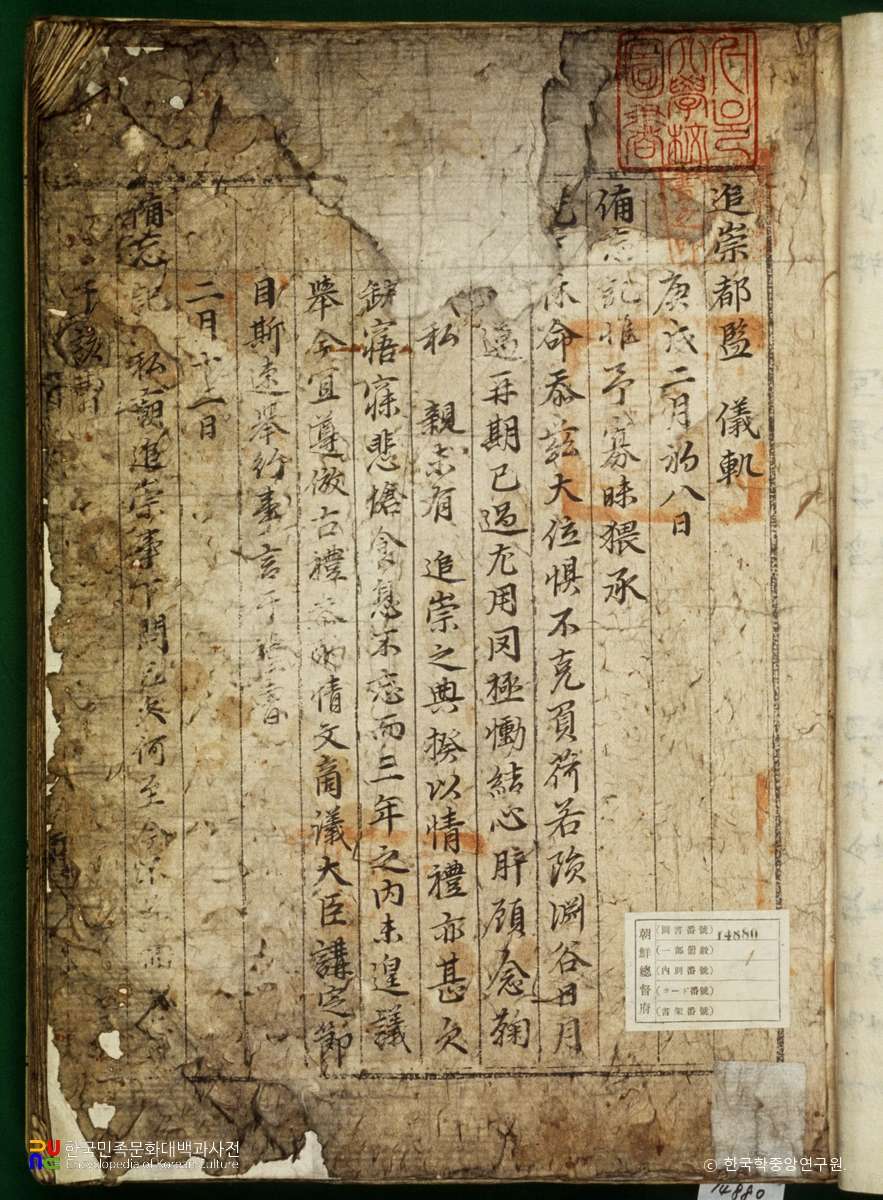 追崇都監 儀軌
庚戌二月初八日
備忘記惟予寡昧猥承
命忝玆大位惧不克負荷若隕淵谷日月
再期已過尤用罔極慟結心肝顧念鞠
私親未有追崇之典揆以情禮亦甚欠
缺寤寐悲愴食息不忘而三年之內未遑議
擧今宜遵倣古禮 情文商議大臣講定節
目斯速擧行事言于
二月十二日
備忘記私親追崇事下問已久何至今
于該
朝鮮總督府
(圖書番號) 14880
(一部冊數) 1
(內別番號)
(カード番號)
(書架番號)
14880
한국민족문화대백과사전
Encyclopedia of Korean Culture
ⓒ 한국학중앙연구원